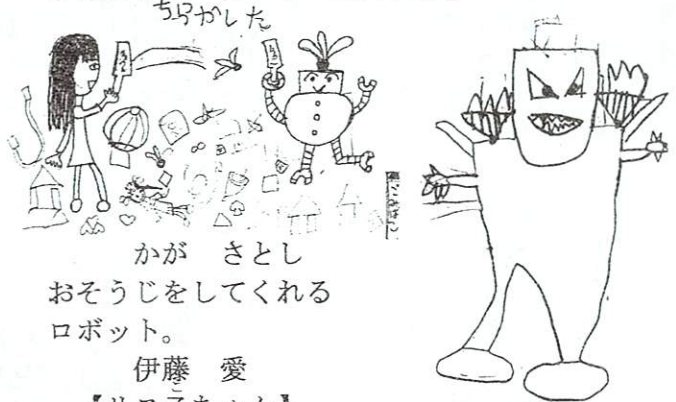 ちらかした
かが さとし
おそうじをしてくれる
ロボット。
伊藤 愛